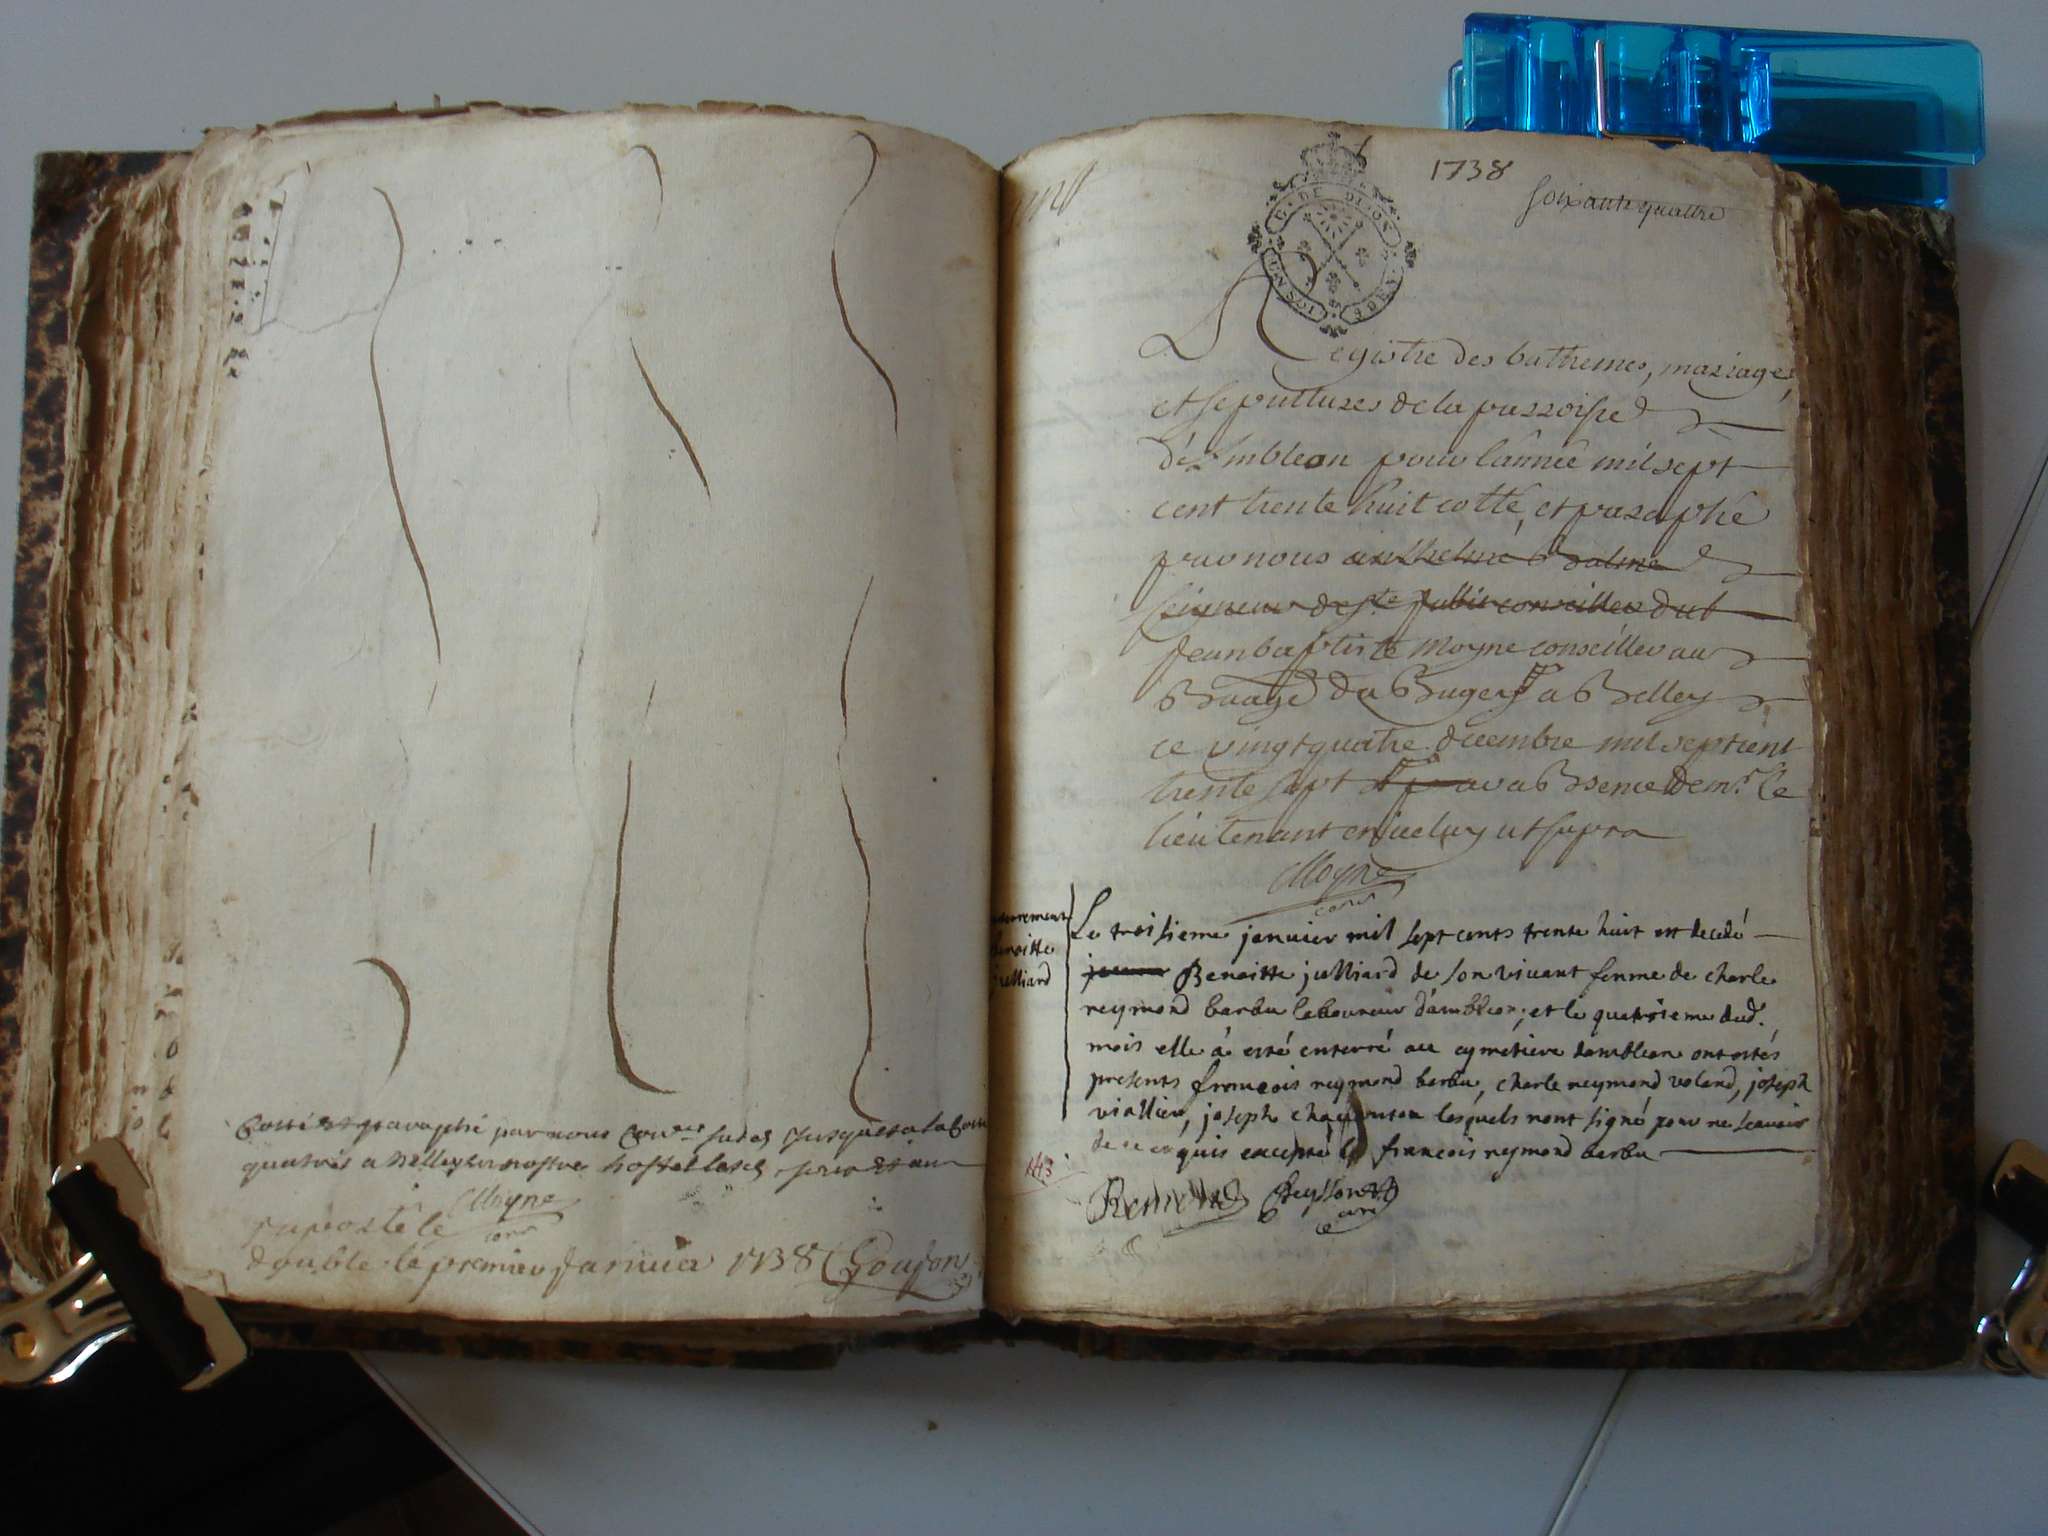 Cotté et paraphé par nous
quatrié a Belley en nostre hostel
Moyne
raporté le
double le premier Janvier 1738 Goujon
1738
soixante quattre
G. DE DIJON
Registre des bathemes, mariages
et sepultures de la parroisse
d'Ambleon pour l'année mil sept
cent trente huit cotté, et paraphé
par nous anthelme Balme
seigneur de ste jullie conseiller du b
Jean baptiste Moyne conseiller au
Bailliage du Bugey a Belley
ce vingt quatre decembre mil sept cent
trente sept av absence de mr. le
lieutenant en jceluy ut supra
Moyne
enterrement
benoitte
julliard
Le troisieme janvier mil sept cents trente huit est decedé
Benoitte julliard de son vivant femme de charle
reymond barbu laboureur d'ambleon; et le quatrieme dud.
mois elle à esté enterré au cymetiere dambleon ont estés
presents francois reymond barbu, charle reymond voland, joseph
viallier, joseph lesquels nont signé pour ne scavoir
de ce enquis excepté le francois reymond barbu
143
Remond Peysson
curé